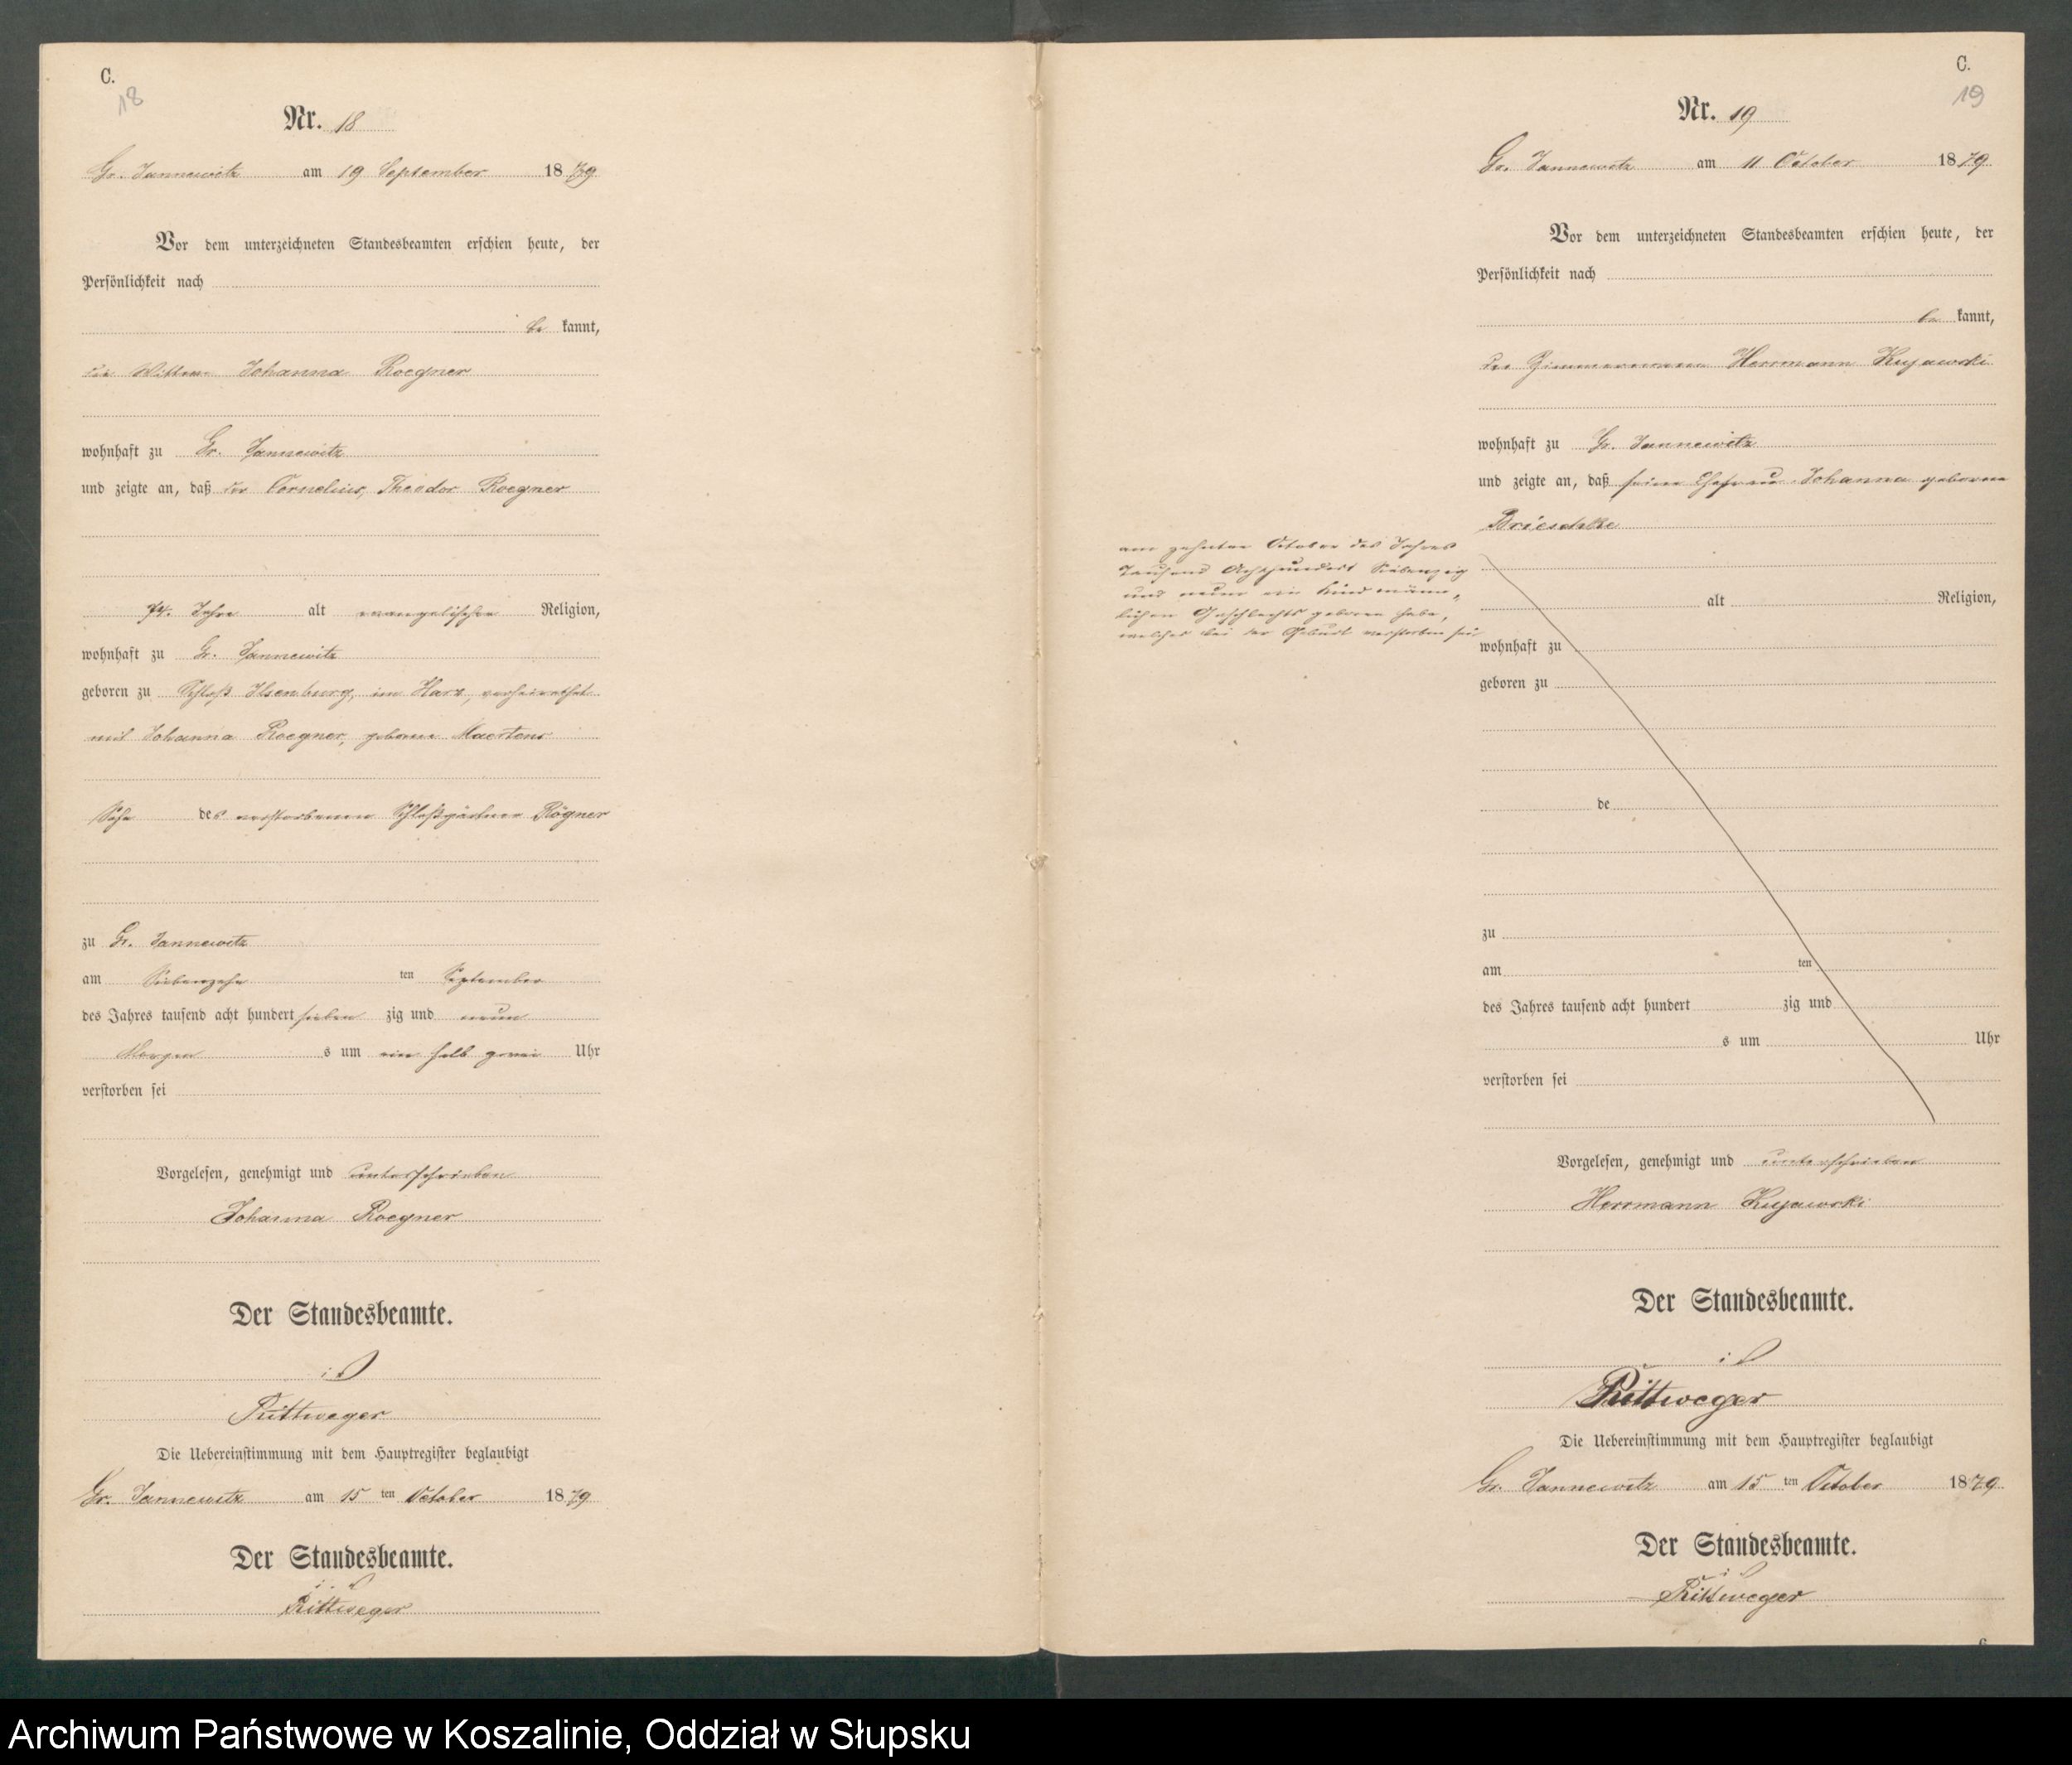 C.
18
Nr. 18
Gr. Jannewitz am 19 September 1879
Vor dem unterzeichneten Standesbeamten erschien heute, der
Persönlichkeit nach
be kannt,
die Wittwe Johanna Roegner
wohnhaft zu Gr. Jannewitz
und zeigte an, daß der Cornelius, Theodor Roegner
74. Jahre alt evangelischer Religion,
wohnhaft zu Gr. Jannewitz
geboren zu Schloß Ilsenburg, im Harz, verheirathet
mit Johanna Roegner, geborene Maertens
Sohn des verstorbenen Schloßgärtner Rögner
zu Gr. Jannewitz
am Siebenzehn ten September
des Jahres tausend acht hundert sieben zig und neun
Morgen s um ein halb zwei Uhr
verstorben sei
Vorgelesen, genehmigt und unterschrieben
Johanna Roegner
Der Standesbeamte.
Rittweger
Die Uebereinstimmung mit dem Hauptregister beglaubigt
Gr. Jannewitz am 15 ten October 1879
Der Standesbeamte.
Rittweger
C.
19
Nr. 19
Gr. Jannewitz am 11 October 1879
Vor dem unterzeichneten Standesbeamten erschien heute, der
Persönlichkeit nach
be kannt,
der Zimmermann Herrmann Kujawski
wohnhaft zu Gr. Jannewitz
und zeigte an, daß seine Ehefrau Johanna geborene
Drieschke
am zehnten October des Jahres
Tausend Achthundert Siebenzig
und neun ein Kind männ-
lichen Geschlechts geboren habe,
welches bei der Geburt verstorben sei
alt Religion,
wohnhaft zu
geboren zu
de
zu
am ten
des Jahres tausend acht hundert zig und
s um Uhr
verstorben sei
Vorgelesen, genehmigt und unterschrieben
Herrmann Kujawski
Der Standesbeamte.
Rittweger
Die Uebereinstimmung mit dem Hauptregister beglaubigt
Gr. Jannewitz am 15 ten October 1879
Der Standesbeamte.
Rittweger
Archiwum Państwowe w Koszalinie, Oddział w Słupsku